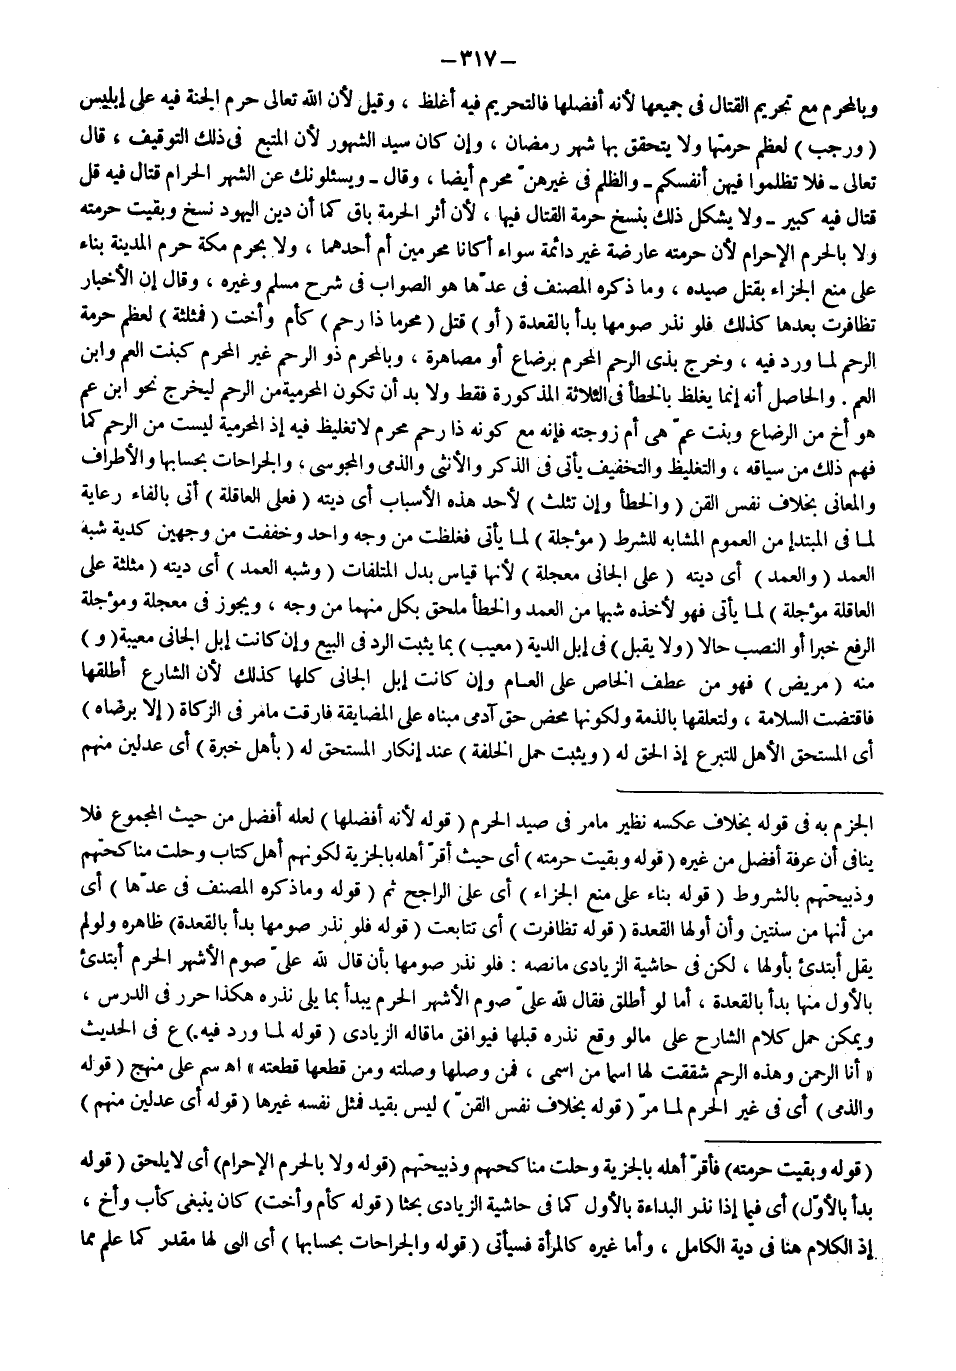 — ٣١٧ —
وبالمحرم مع تحريم القتال فى جميعها لأنه أفضلها فالتحريم فيه أغلظ ، وقيل لأن الله تعالى حرم الجنة فيه على إبليس
( ورجب ) لعظم حرمتها ولا يتحقق بها شهر رمضان ، وإن كان سيد الشهور لأن المتبع فى ذلك التوقيف ، قال
تعالى ـ فلا تظلموا فيهن أنفسكم ـ والظلم فى غيرهنّ محرم أيضا ، وقال ـ ويسئلونك عن الشهر الحرام قتال فيه قل
قتال فيه كبير ـ ولا يشكل ذلك بنسخ حرمة القتال فيها ، لأن أثر الحرمة باق كما أن دين اليهود نسخ وبقيت حرمته
ولا بالحرم الإحرام لأن حرمته عارضة غير دائمة سواء أكانا محرمين أم أحدهما ، ولا بحرم مكة حرم المدينة بناء
على منع الجزاء بقتل صيده ، وما ذكره المصنف فى عدّها هو الصواب فى شرح مسلم وغيره ، وقال إن الأخبار
تظافرت بعدها كذلك فلو نذر صومها بدأ بالقعدة ( أو ) قتل ( محرما ذا رحم ) كأم وأخت ( فمثلثة ) لعظم حرمة
الرحم لما ورد فيه ، وخرج بذى الرحم المحرم برضاع أو مصاهرة ، وبالمحرم ذو الرحم غير المحرم كبنت العم وابن
العم . والحاصل أنه إنما يغلظ بالخطأ فى الثلاثة المذكورة فقط ولا بد أن تكون المحرمية من الرحم ليخرج نحو ابن عم
هو أخ من الرضاع وبنت عمّ هى أم زوجته فإنه مع كونه ذا رحم محرم لا تغليظ فيه إذ المحرمية ليست من الرحم كما
فهم ذلك من سياقه ، والتغليظ والتخفيف يأتى فى الذكر والأنثى والذمى والمجوسى ، والجراحات بحسابها والأطراف
والمعانى بخلاف نفس القن ( والخطأ وإن تثلث ) لأحد هذه الأسباب أى ديته ( فعلى العاقلة ) أتى بالفاء رعاية
لما فى المبتدإ من العموم المشابه للشرط ( مؤجلة ) لما يأتى فغلظت من وجه واحد وخففت من وجهين كدية شبه
العمد ( والعمد ) أى ديته ( على الجانى معجلة ) لأنها قياس بدل المتلفات ( وشبه العمد ) أى ديته ( مثلثة على
العاقلة مؤجلة ) لما يأتى فهو لأخذه شبها من العمد والخطأ ملحق بكل منهما من وجه ، ويجوز فى معجلة ومؤجلة
الرفع خبرا أو النصب حالا ( ولا يقبل ) فى إبل الدية ( معيب ) بما يثبت الرد فى البيع وإن كانت إبل الجانى معيبة ( و )
منه ( مريض ) فهو من عطف الخاص على العام وإن كانت إبل الجانى كلها كذلك لأن الشارع أطلقها
فاقتضت السلامة ، ولتعلقها بالذمة ولكونها محض حق آدمى مبناه على المضايقة فارقت مامر فى الزكاة ( إلا برضاه )
أى المستحق الأهل للتبرع إذ الحق له ( ويثبت حمل الخلفة ) عند إنكار المستحق له ( بأهل خبرة ) أى عدلين منهم
الجزم به فى قوله بخلاف عكسه نظير مامر فى صيد الحرم ( قوله لأنه أفضلها ) لعله أفضل من حيث المجموع فلا
ينافى أن عرفة أفضل من غيره ( قوله وبقيت حرمته ) أى حيث أقرّ أهله بالجزية لكونهم أهل كتاب وحلت مناكحتهم
وذبيحتهم بالشروط ( قوله بناء على منع الجزاء ) أى على الراجح ثم ( قوله وماذكره المصنف فى عدّها ) أى
من أنها من سنتين وأن أولها القعدة ( قوله تظافرت ) أى تتابعت ( قوله فلو نذر صومها بدأ بالقعدة ) ظاهره ولو لم
يقل أبتدئ بأولها ، لكن فى حاشية الزيادى مانصه : فلو نذر صومها بأن قال لله علىّ صوم الأشهر الحرم أبتدئ
بالأول منها بدأ بالقعدة ، أما لو أطلق فقال لله علىّ صوم الأشهر الحرم يبدأ بما يلى نذره هكذا حرر فى الدرس ،
ويمكن حمل كلام الشارح على مالو وقع نذره قبلها فيوافق ماقاله الزيادى ( قوله لما ورد فيه ) ع فى الحديث
« أنا الرحمن وهذه الرحم شققت لها اسما من اسمى ، فمن وصلها وصلته ومن قطعها قطعته » اهـ سم على منهج ( قوله
والذمى ) أى فى غير الحرم لما مرّ ( قوله بخلاف نفس القنّ ) ليس بقيد فمثل نفسه غيرها ( قوله أى عدلين منهم )
( قوله وبقيت حرمته ) فأقرّ أهله بالجزية وحلت مناكحهم وذبيحتهم ( قوله ولا بالحرم الإحرام ) أى لا يلحق ( قوله
بدأ بالأوّل ) أى فيما إذا نذر البداءة بالأول كما فى حاشية الزيادى بحثا ( قوله كأم وأخت ) كان ينبغى كأب وأخ ،
إذ الكلام هنا فى دية الكامل ، وأما غيره كالمرأة فسيأتى ( قوله والجراحات بحسابها ) أى التى لها مقدر كما علم مما